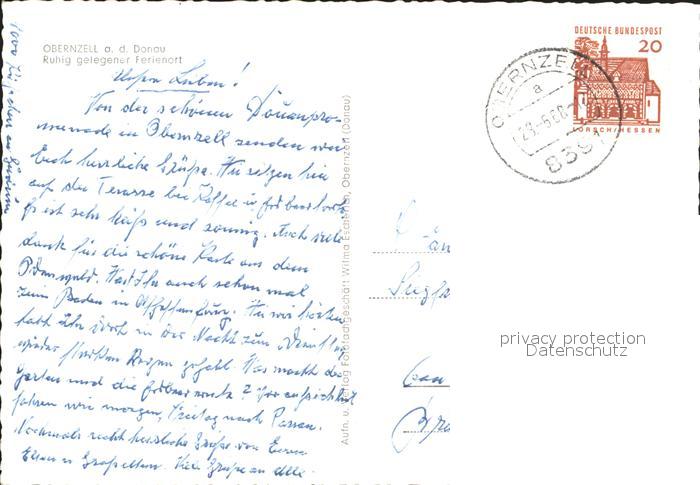 OBERNZELL a. d. Donau
Ruhig gelegener Ferienort
Lieben!
Von der schönen Donaupro-
menade in Obernzell senden wir
Euch herzliche Grüße. Wir sitzen hier
auf der Terasse bei Kaffee u. Erdbeertorte
Es ist sehr heiß und sonnig. Noch vielen
dank für die schöne Karte aus dem
Odenwald. Wart Ihr auch schon mal
zum Baden in
habt Ihr doch in der Nacht zum
wieder starken Regen gehabt. Was macht der
Garten und die Erdbeerernte?
fahren wir morgen, Freitag nach Passau.
Nochmals recht herzliche Grüße von Euren
Eltern u Großeltern. Viele Grüße an alle.
Aufn. u. Verlag Fotofachgeschäft Wilma Obernzell (Donau)
DEUTSCHE BUNDESPOST
20
LORSCH/HESSEN
OBERNZELL
a
839
privacy protection
Datenschutz